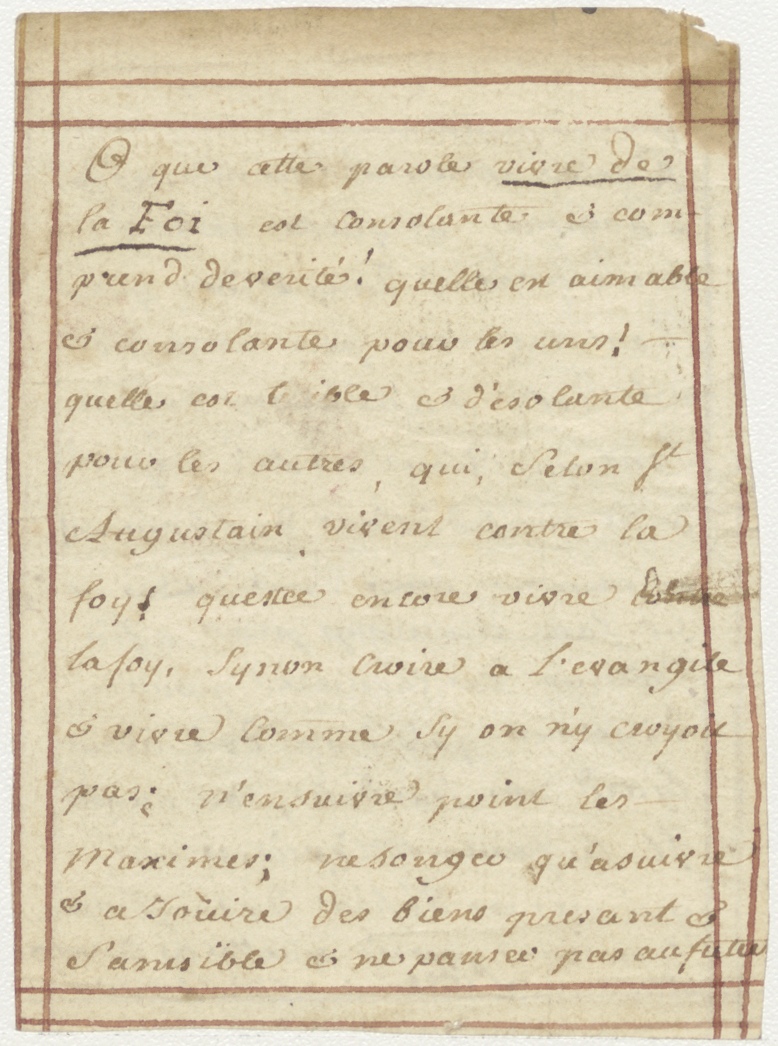 O que cette parole vivre de
la Foi est consolante & com-
prend de verité! quelle est aimable
& consolante pour les uns! —
quelle est & désolante
pour les autres, qui, Selon St
Augustain, vivent contre la
foy! questce encore vivre contre
la foy, Synon Croire a l'evangile
& vivre Comme Sy on n'y croyoit
pas; n'ensuivre point les —
Maximes; ne songer qu'a suivre
& a Joüire des biens presant &
Sansïble & ne panser pas au futur